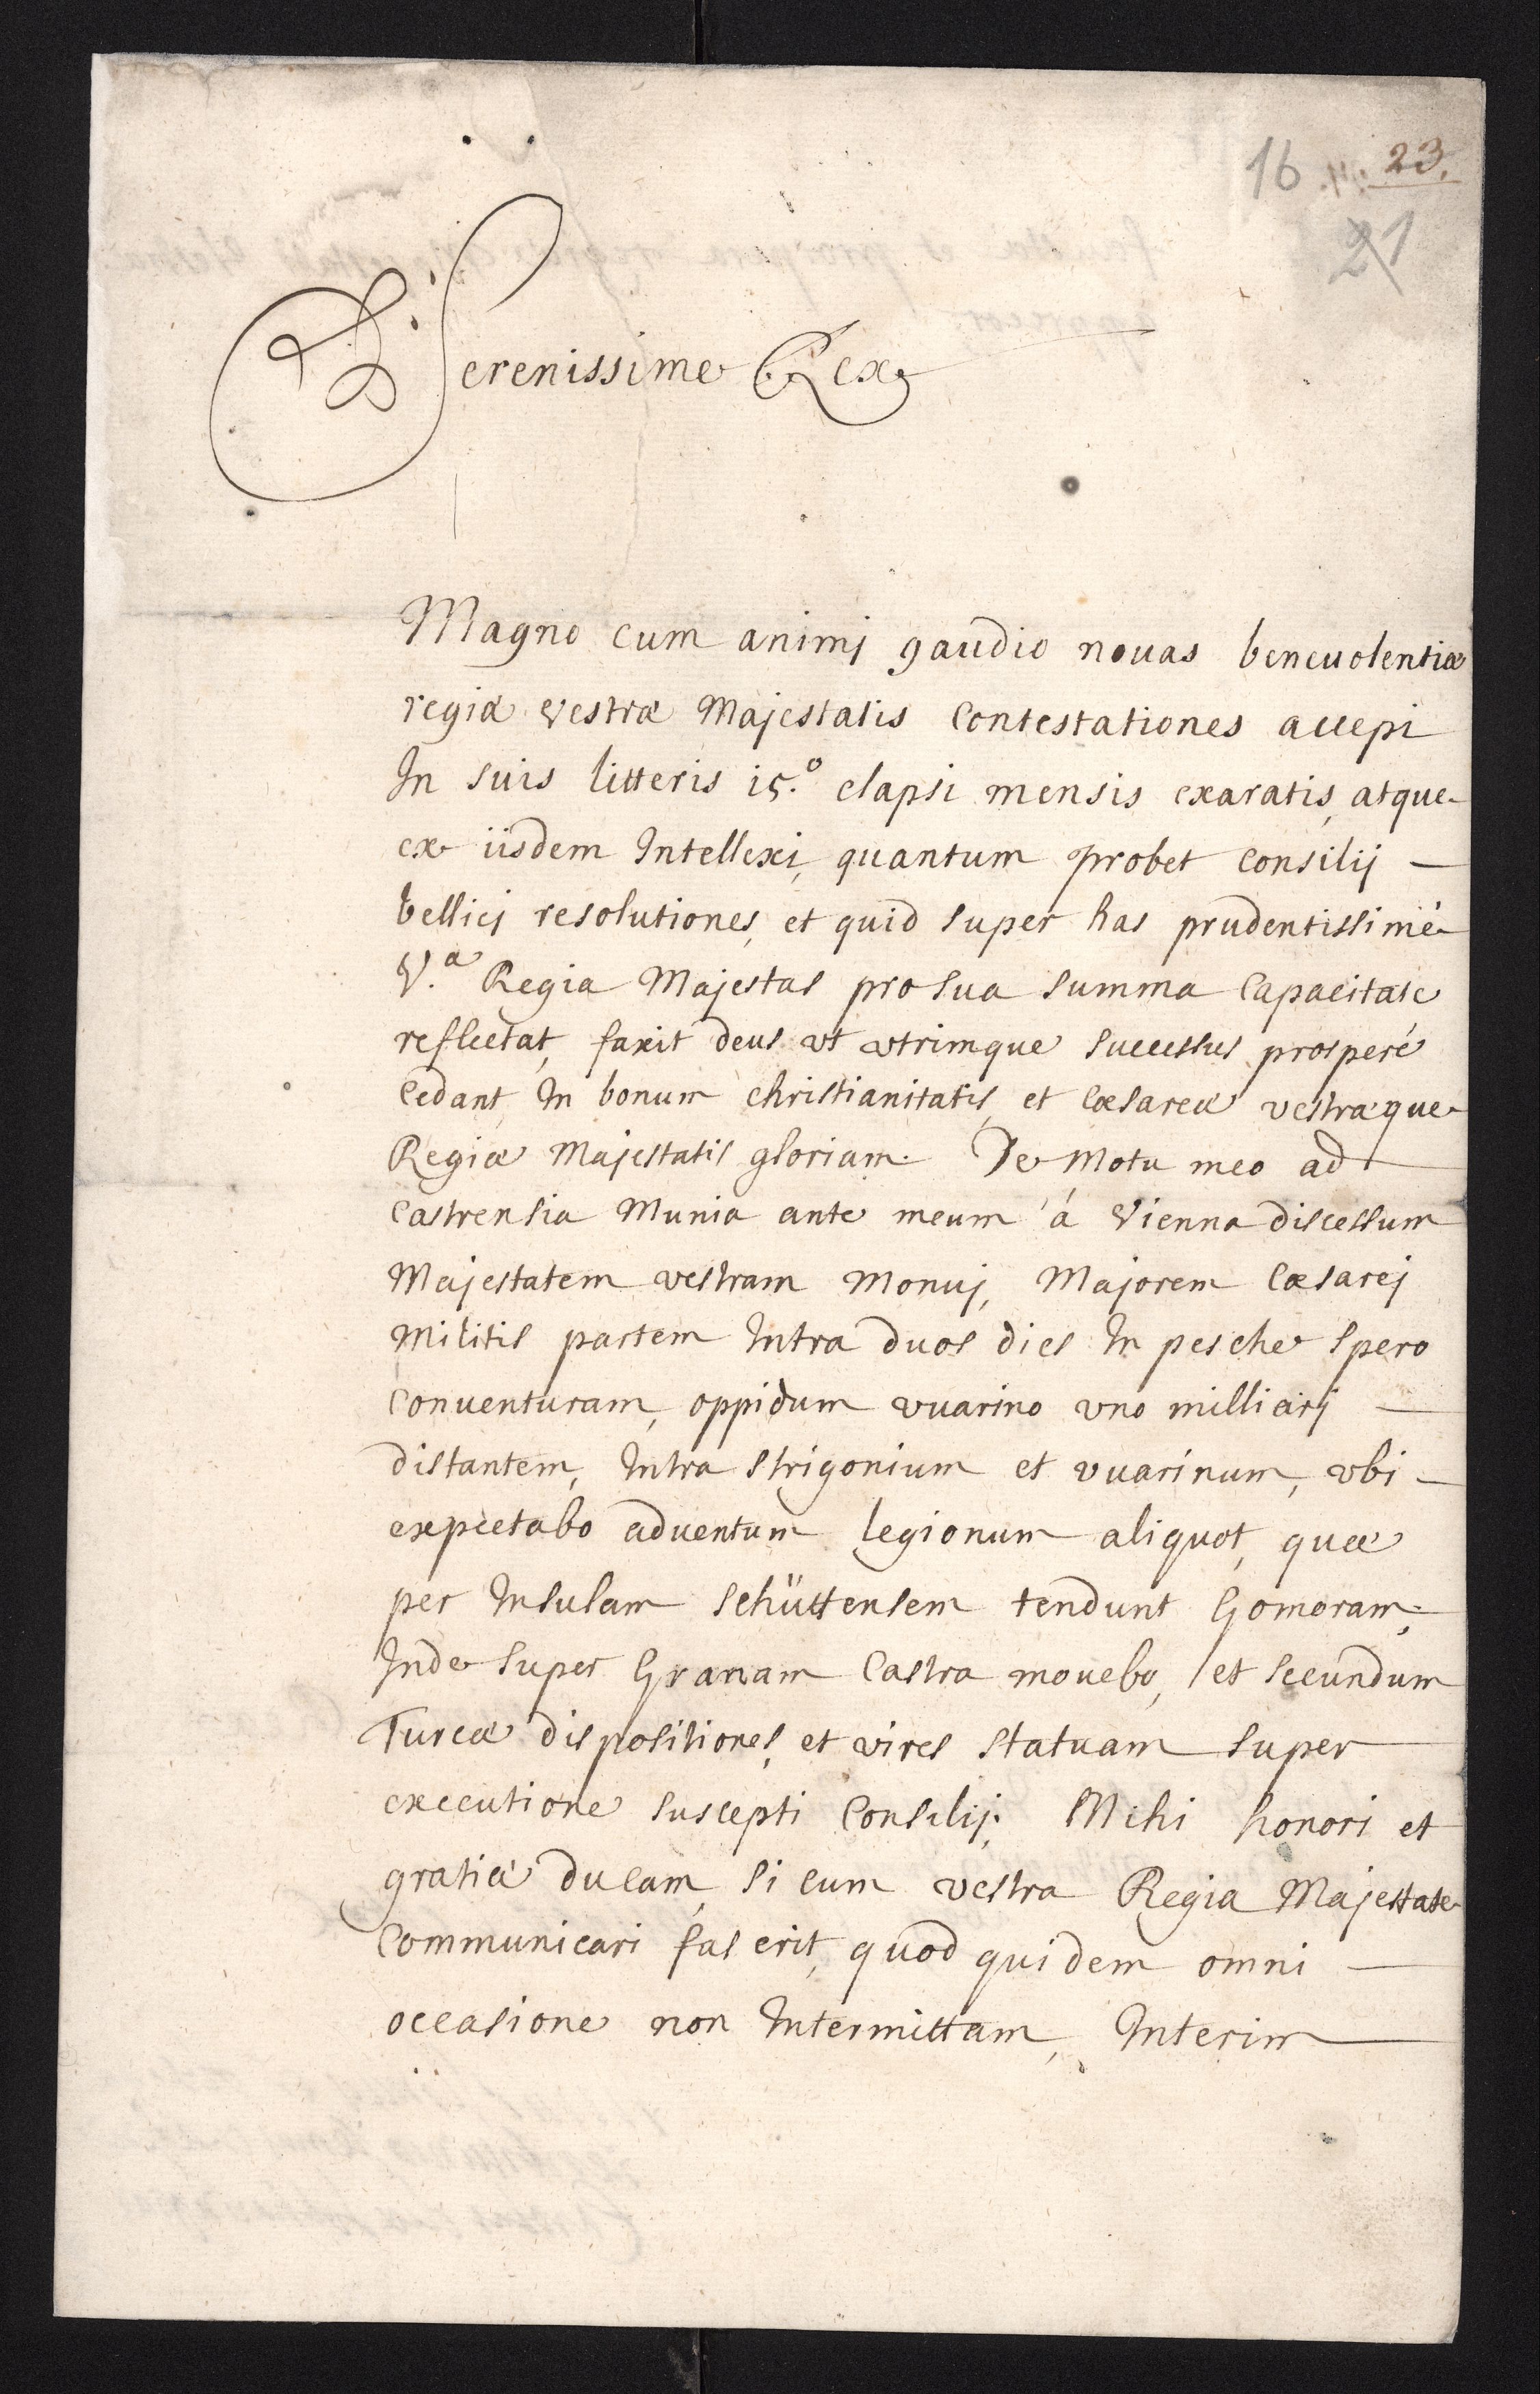 16 23.
21
Serenissime Rex
Magno cum animj gaudio nouas beneuolentiæ
regiæ vestræ Majestatis Contestationes accepi
In suis litteris 15.º elapsi mensis exaratis, atque
ex iisdem Intellexi, quantum probet consilij —
bellicj resolutiones, et quid super has prudentissimè
V.ª Regia Majestas pro sua summa Capacitate
reflectat, faxit deus vt vtrimque successus prosperé
Cedant In bonum christianitatis, et Cæsareæ vestræque
Regiæ Majestatis gloriam. De Motu meo ad
Castrensia Munia ante meum á Vienna discessum
Majestatem vestram Monuj, Majorem Cæsarej
Militis partem Intra duos dies In pesche spero
Conuenturam, oppidum vuarino vno milliarj —
distantem, Intra strigonium et vuarinum, vbi —
expectabo aduentum legionum aliquot, quæ
per Insulam schüttensem tendunt Gomoram;
Inde super Granam Castra mouebo, et secundum
Turcæ dispositiones, et vires statuam super
executione suscepti Consilij; Mihi honori et
gratiæ ducam, si cum vestra Regia Majestate
Communicari fas erit, quod quidem omni —
occasione non Intermittam, Interim